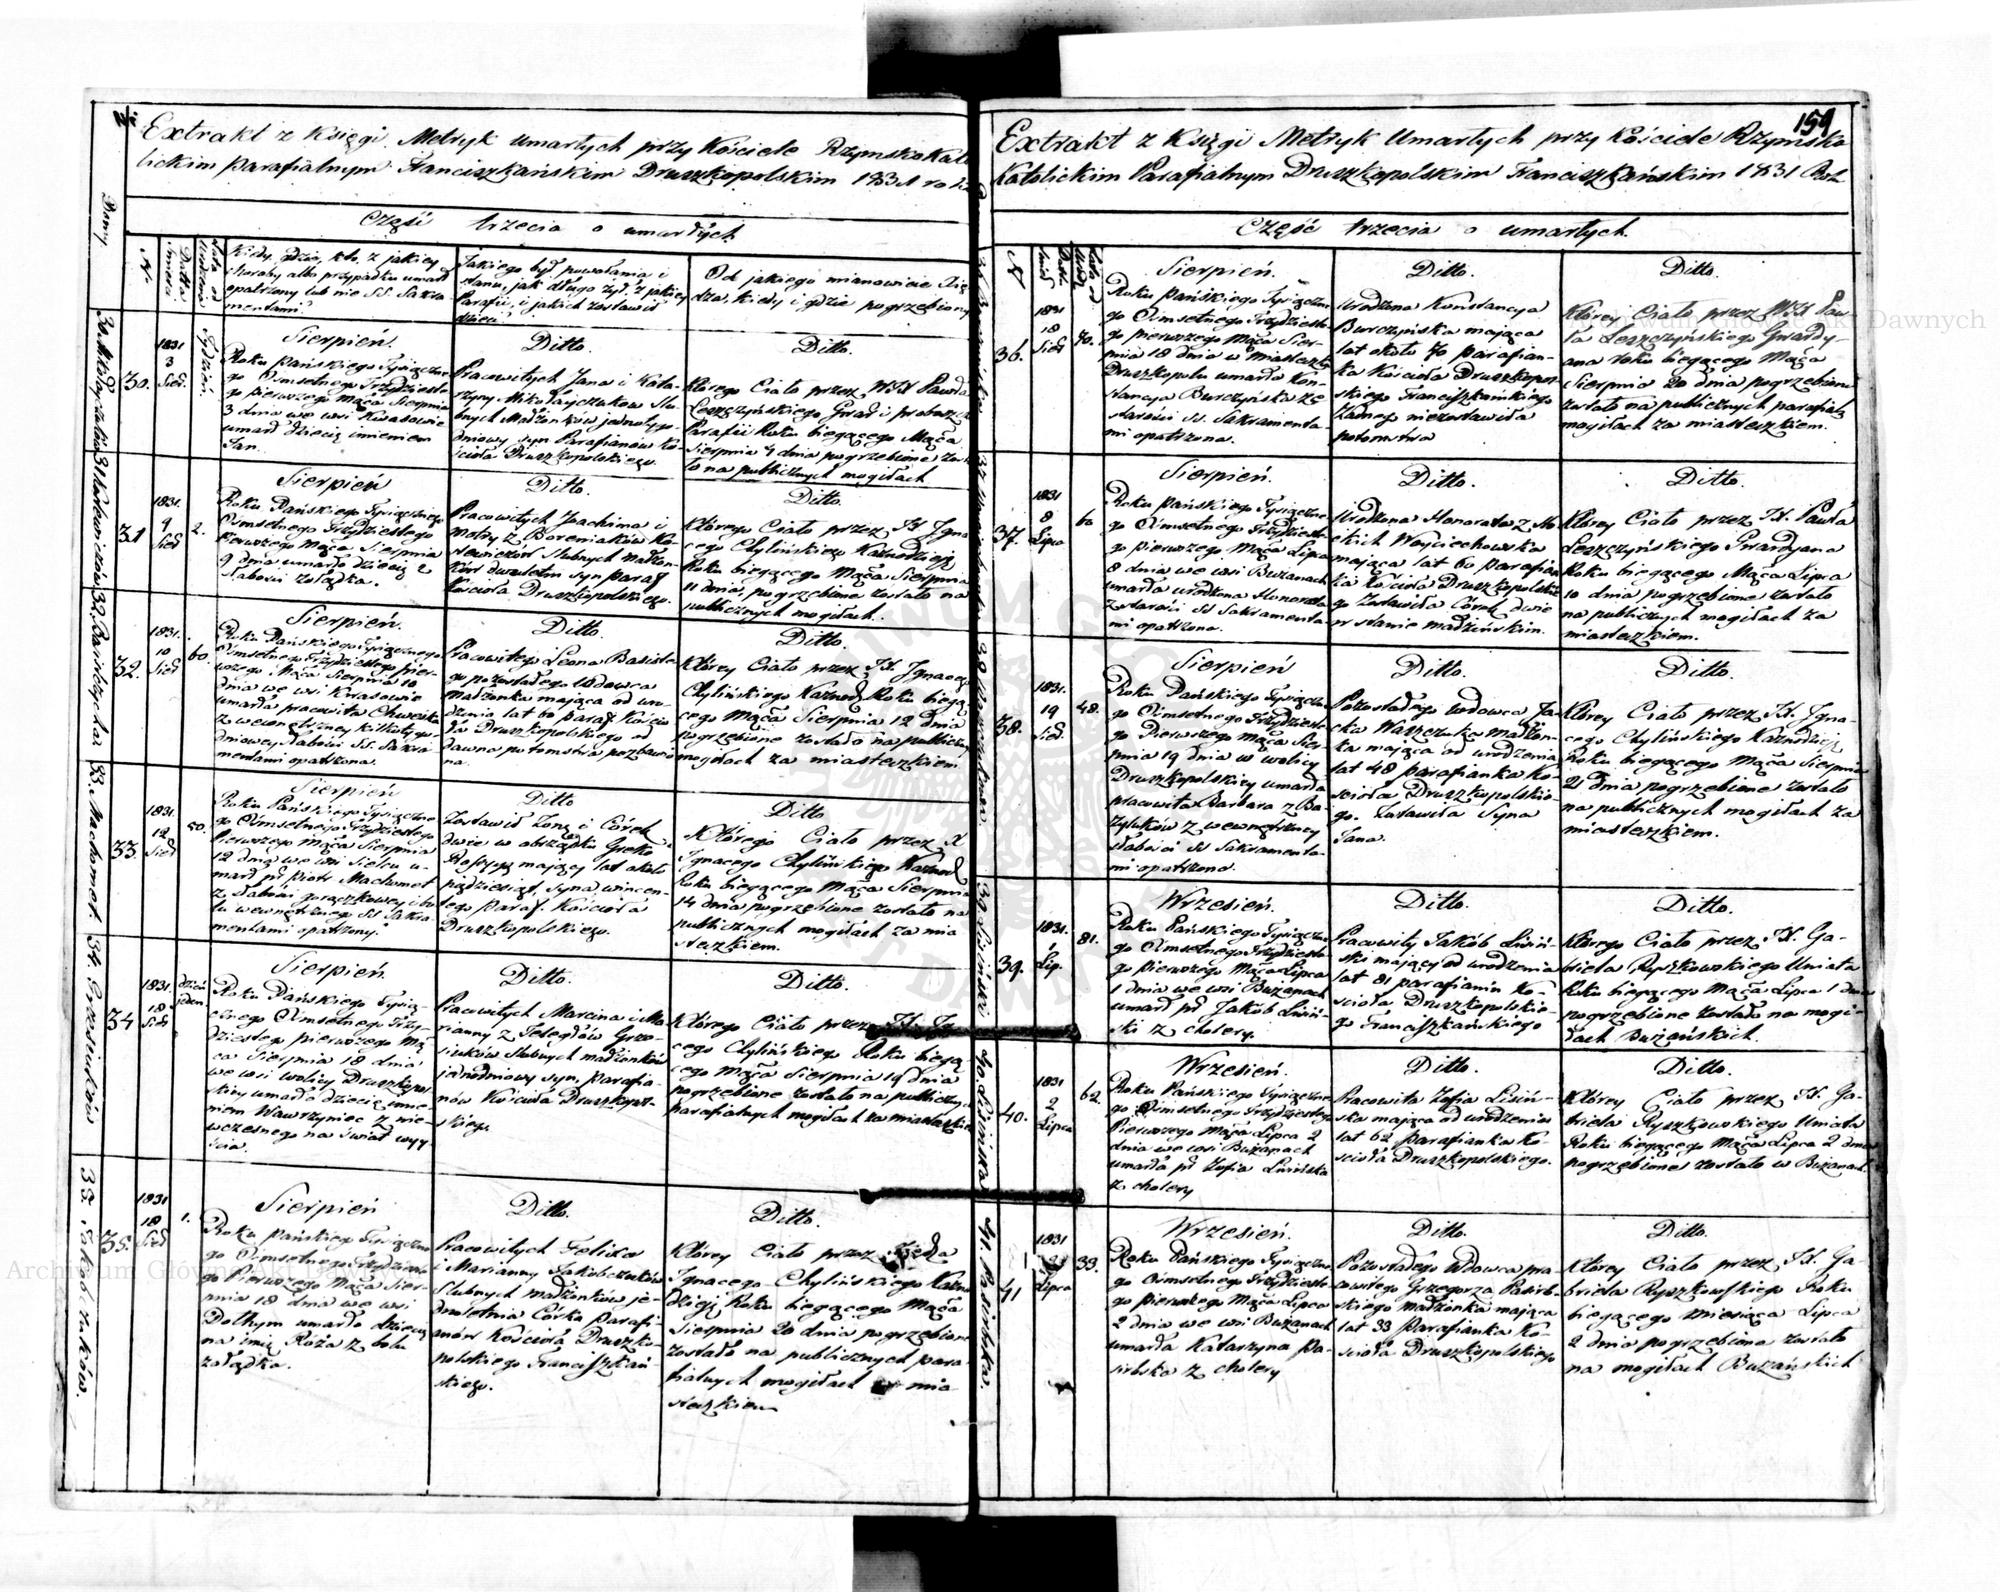 159
Extrakt z Księgi Metryk umarłych przy Kościele Rzymsko Kato
lickim Parafialnym Franciszkańskim Druszkopolskim 1831 roku
Część trzecia o umarłych
Kiedy, gdzie, kto, z jakiey
choroby albo przypadku umarł
opatrzony lub nie SS. Sakra
mentami.
Jakiego był powołania i
stanu, jak długo żył, z jakiey
Parafii, i jakich zostawił
dzieci
Od jakiego mianowicie Xię
dza, kiedy i gdzie pogrzebiony
30.
1831
3
Sier.
Tydzień.
Sierpień.
Roku Pańskiego Tysiączne
go Osmsetnego Trzydzieste
go pierwszego Mąca Sierpnia
3 dnia we wsi Kwasowie
umarł dziecię imieniem
Jan.
Ditto.
Pracowitych Jana i Kata-
rzyny Mikołayczuków Slu-
bnych Małżonków jednotygo-
dniowy syn Parafianów Ko-
ścioła Druszkopolskiego.
Ditto.
Którego Ciało przez
Leszczyńskiego Gward i proboszcza
Parafii Roku biegącego Mąca
Sierpnia 4 dnia pogrzebione zosta
ło na publicznych mogiłach
31
1831.
9
Sier
2.
Sierpień
Roku Pańskiego Tysiącznego
Osmsetnego Trzydziestego
Pierwszego Mąca Sierpnia
9 dnia umarło dziecię z
słabości żołądka.
Ditto.
Pracowitych Joachima i
Slubnych małżon-
ków dwuletni syn paraf
Kościoła Druszkopolskiego.
Ditto.
Którego Ciało przez JX Igna
cego Chylińskiego Kaznodzieję
Roku biegącego Mąca Sierpnia
11 dnia, pogrzebione zostało na
publicznych mogiłach.
32.
1831.
10
Sier
60.
Sierpień.
Roku Pańskiego Tysiącznego
Osmsetnego Trzydziestego pier-
wszego Mąca Sierpnia 10
dnia we wsi Kwasowie
umarła pracowita
z wewnętrzney kilkotygo-
dniowey słabości SS. Sakra
mentami opatrzona.
Ditto.
Pracowitego Leona
go pozostałego wdowca
małżonka mająca od uro-
dzenia lat 60 paraf. Kościo
ła Druszkopolskiego od
dawna potomstwa pozbawio
na.
Ditto.
Którey Ciało przez JX Ignacego
Chylińskiego Kaznod. Roku biegą-
cego Mąca Sierpnia 12 dnia
pogrzebione zostało na publiczny
mogiłach za miasteczkiem
33.
1831.
12
Sier
50.
Sierpień
Roku Pańskiego Tysiączne
go Osmsetnego Trzydziestego
Pierwszego Mąca Sierpnia
12 dnia we wsi Sielcu u-
marł pr. Piotr Machomet
z słabości gorączkowey i bo
lu wewnętrznego SS Sakra
mentami opatrzony.
Ditto
Zostawił Żonę i Córek
dwie w obrządku Greko
Rossyys mający lat około
pięćdziesiąt, syna Wincen-
tego paraf. Kościoła
Druszkopolskiego.
Ditto
Którego Ciało przez X
Ignacego Chylińskiego Kaznod
Roku biegącego Mąca Sierpnia
14 dnia pogrzebione zostało na
publicznych mogiłach za mia
steczkiem.
34
1831.
18
Sier
dzień
jeden.
Sierpień.
Roku Pańskiego Tysią-
cznego Osmsetnego Trzy-
dziestego pierwszego Mą
ca Sierpnia 18 dnia
we wsi Wolicy Druszkopol
skiey umarło dziecię imie-
niem Wawrzyniec z nie-
wczesnego na świat wyy-
ścia.
Ditto.
Pracowitych Marcina i Ma
rianny z
Slubnych małżonków
jednodniowy syn, parafia-
nów Kościoła Druszkopol-
skiego
Ditto.
Którego Ciało przez JX. Ig
cego Chylińskiego Roku biegą
cego Mąca Sierpnia 19 dnia
pogrzebione zostało na publiczny
parafialnych mogiłach za miasteczkiem
35.
1831
18
Sier
1.
Sierpień
Roku Pańskiego Tysiączne
go Osmsetnego Trzydzieste
go Pierwszego Mąca Sier-
pnia 18 dnia we wsi
umarło dziecię
na imię Róża z bolu
żołądka.
Ditto.
Pracowitych Felixa
i Marianny Jakobczuków
Slubnych małżonków je-
dnoletnia Córka Parafi-
anów kościoła Druszko-
polskiego Franciszkań
skiego.
Ditto.
Którey Ciało przez Xiędza
Ignacego Chylińskiego Kazno
dzieję Roku biegącego Mąca
Sierpnia 20 dnia pogrzebione
zostało na publicznych para
fialnych mogiłach za mia
steczkiem
Extrakt z Księgi Metryk Umarłych przy Kościele Rzymsko
Katolickim Parafialnym Druszkopolskim Franciszkańskim 1831 Rok
Część trzecia o umarłych.
36.
1831
18
Sier
70.
Sierpień.
Roku Pańskiego Tysiączne
go Osmsetnego Trzydzieste
go pierwszego Mąca Sier-
pnia 18 dnia w miasteczku
Druszkopolu umarła Kon-
stancya Burczyńska ze
starości SS. Sakramenta
mi opatrzona.
Ditto.
Urodzona Konstancya
Burczyńska mająca
lat około 70 parafian-
ka Kościoła Druszkopol-
skiego Franciszkańskiego
żadnego niezostawiła
potomstwa
Ditto.
Którey Ciało przez Paw-
ła Leszczyńskiego Gwardy-
ana roku biegącego Mąca
Sierpnia 20 dnia pogrzebione
zostało na publicznych parafial
mogiłach za miasteczkiem.
37.
1831
8
Lipca
60
Sierpień.
Roku Pańskiego Tysiączne
go Osmsetnego Trzydzieste
go pierwszego Mąca Lipca
8 dnia we wsi Bużanach
umarła urodzona Honorata
z starości SS Sakramenta
mi opatrzona.
Ditto.
Urodzona Honorata z
Woyciechowska
mająca lat 60 parafian
ka Kościoła Druszkopolskie
go Zostawiła Córek dwie
w stanie małżeńskim.
Ditto.
Którey Ciało przez JX. Pawła
Leszczyńskiego Gwardyana
Roku biegącego Mąca Lipca
10 dnia pogrzebione zostało
na publicznych mogiłach za
miasteczkiem.
38.
1831.
19
Sier.
48.
Sierpień
Roku Pańskiego Tysiączne
go Osmsetnego Trzydzieste
go Pierwszego Mąca Sier-
pnia 19 dnia w wolicy
Druszkopolskiey umarła
pracowita Barbara z Ba
zyluków z wewnętrzney
słabości SS Sakramenta-
mi opatrzona.
Ditto.
Pozostałego wdowca Ja-
cka Waszczuka małżon-
ka mająca od urodzenia
lat 48 parafianka Ko-
ścioła Druszkopolskie-
go. Zostawiła Syna
Jana.
Ditto.
Którey Ciało przez JX. Igna-
cego Chylińskiego Kaznodzieję
Roku biegącego Mąca Sierpnia
21 dnia pogrzebione zostało
na publicznych mogiłach za
miasteczkiem.
39.
1831.
1
Lip.
81.
Wrzesień.
Roku Pańskiego Tysiączne
go Osmsetnego Trzydzieste
go pierwszego Mąca Lipca
1 dnia we wsi Bużanach
umarł pr Jakób Lisiń-
ski z cholery.
Ditto.
Pracowity Jakób Lisiń-
ski mający od urodzenia
lat 81 parafianin Ko-
ścioła Druszkopolskie-
go Franciszkańskiego
Ditto.
Którego Ciało przez JX. Ga-
briela Ryszkowskiego Uniata
Roku biegącego Mąca Lipca 1 dnia
pogrzebione zostało na mogi-
łach Bużańskich.
40.
1831
2
Lipca
62
Wrzesień.
Roku Pańskiego Tysiączne
go Osmsetnego Trzydziestego
Pierwszego Mąca Lipca 2
dnia we wsi Bużanach
umarła pr Zofia Lisińska
z cholery
Ditto.
Pracowita Zofia Lisiń-
ska mająca od urodzenia
lat 62 parafianka Ko-
ścioła Druszkopolskiego.
Ditto.
Którey Ciało przez JX. Ga-
briela Ryszkowskiego Uniata
Roku biegącego Mąca Lipca 2 dnia
pogrzebione zostało w Bużanach
41
1831
Lipca
33.
Wrzesień.
Roku Pańskiego Tysiączne
go Osmsetnego Trzydzieste-
go pierwszego Mąca Lipca
2 dnia we wsi Bużanach
umarła Katarzyna Pa-
sirbska z cholery
Ditto.
Pozostałego Wdowca pra-
cowitego Grzegorza Pasirb-
skiego małżonka mająca
lat 33 Parafianka Ko-
ścioła Druszkopolskiego
Ditto.
Którey Ciało przez JX. Ga-
briela Ryszkowskiego Roku
biegącego miesiąca Lipca
2 dnia pogrzebione zostało
na mogiłach Bużańskich
Archiwum Główne Akt Dawnych
Archiwum Główne Akt Dawnych